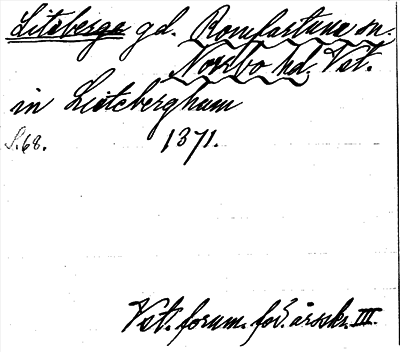 Litsberga gd. Romfartuna sn.
Norrbo hd. Vst.
in Liitzberghum
S. 68. 1371.
Vst. fornm. för. årsskr. III.